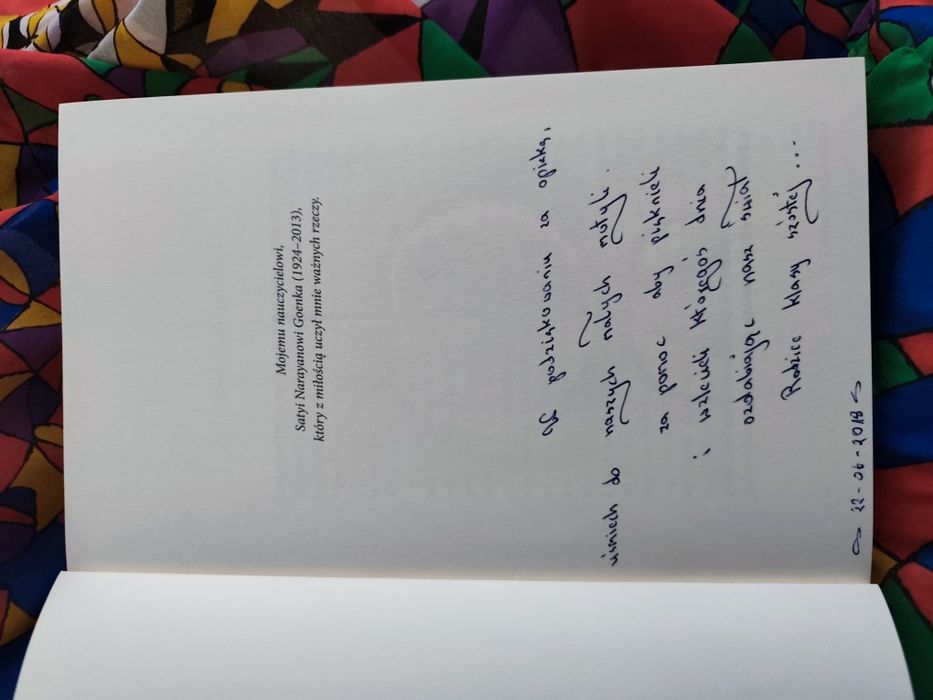 Mojemu nauczycielowi,
Satyi Narayanowi Goenka (1924–2013),
który z miłością uczył mnie ważnych rzeczy.
W podziękowaniu za opiekę,
uśmiech do naszych małych motyli.
za pomoc aby pięknieli
i wzlecieli któregoś dnia
ozdabiając nasz świat
Rodzice klasy szóstej...
~ 22-06-2018 ~